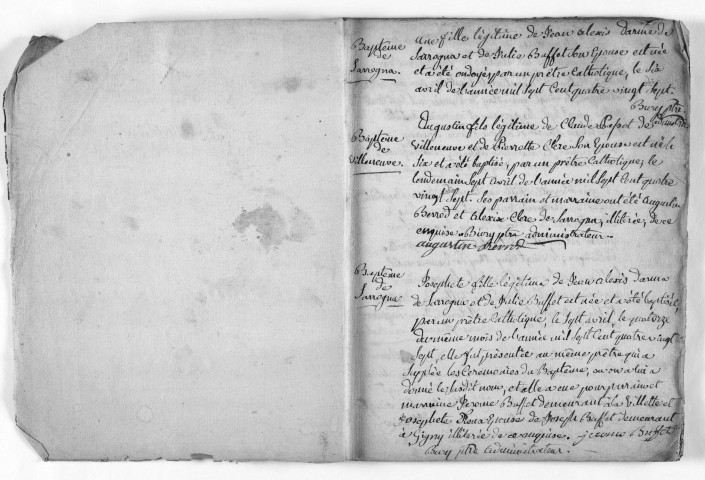 Baptême
de
Sarrogna.
une fille légitime de Jean Alexis darme de
Sarrogna et de Julie Buffet son Epouse est née
et a été ondoyée par un prêtre Catholique, le six
avril de l'année mil sept cent quatre vingt sept.
Bury ptre
Baptême
de
Villeneuve.
Augustin fils légitime de Claude
Villeneuve et de Pierrette Clere son Epouse est né le
six et a été baptisé, par un prêtre Catholique, le
lendemain sept avril de l'année mil sept cent quatre
vingt sept. Ses parrain et marraine ont été Augustin
Berrod et Alexise Clere de Sarrogna, illiterée, de ce
enquise. Bury ptre administrateur.
augustin Berrod
Baptême
de
Sarrogna
Josephete fille légitime de Jean alexis darme
de Sarrogna et de Julie Buffet est née et a été baptisée,
par un prêtre Catholique, le sept avril, le quatorze
du même mois de l'année mil sept cent quatre vingt
sept, elle fut présentée au même prêtre qui a
supplée les Ceremonies du Baptême, ou on a lui a
donné le susdit nom, et elle a eue pour parrain et
marraine Jerome Buffet demeurant à la Villette et
Josephete Roux Epouse de Joseph Buffet demeurant
à Gigny illiterée de ce enquise. jerome Buffet
Bury ptre administrateur.